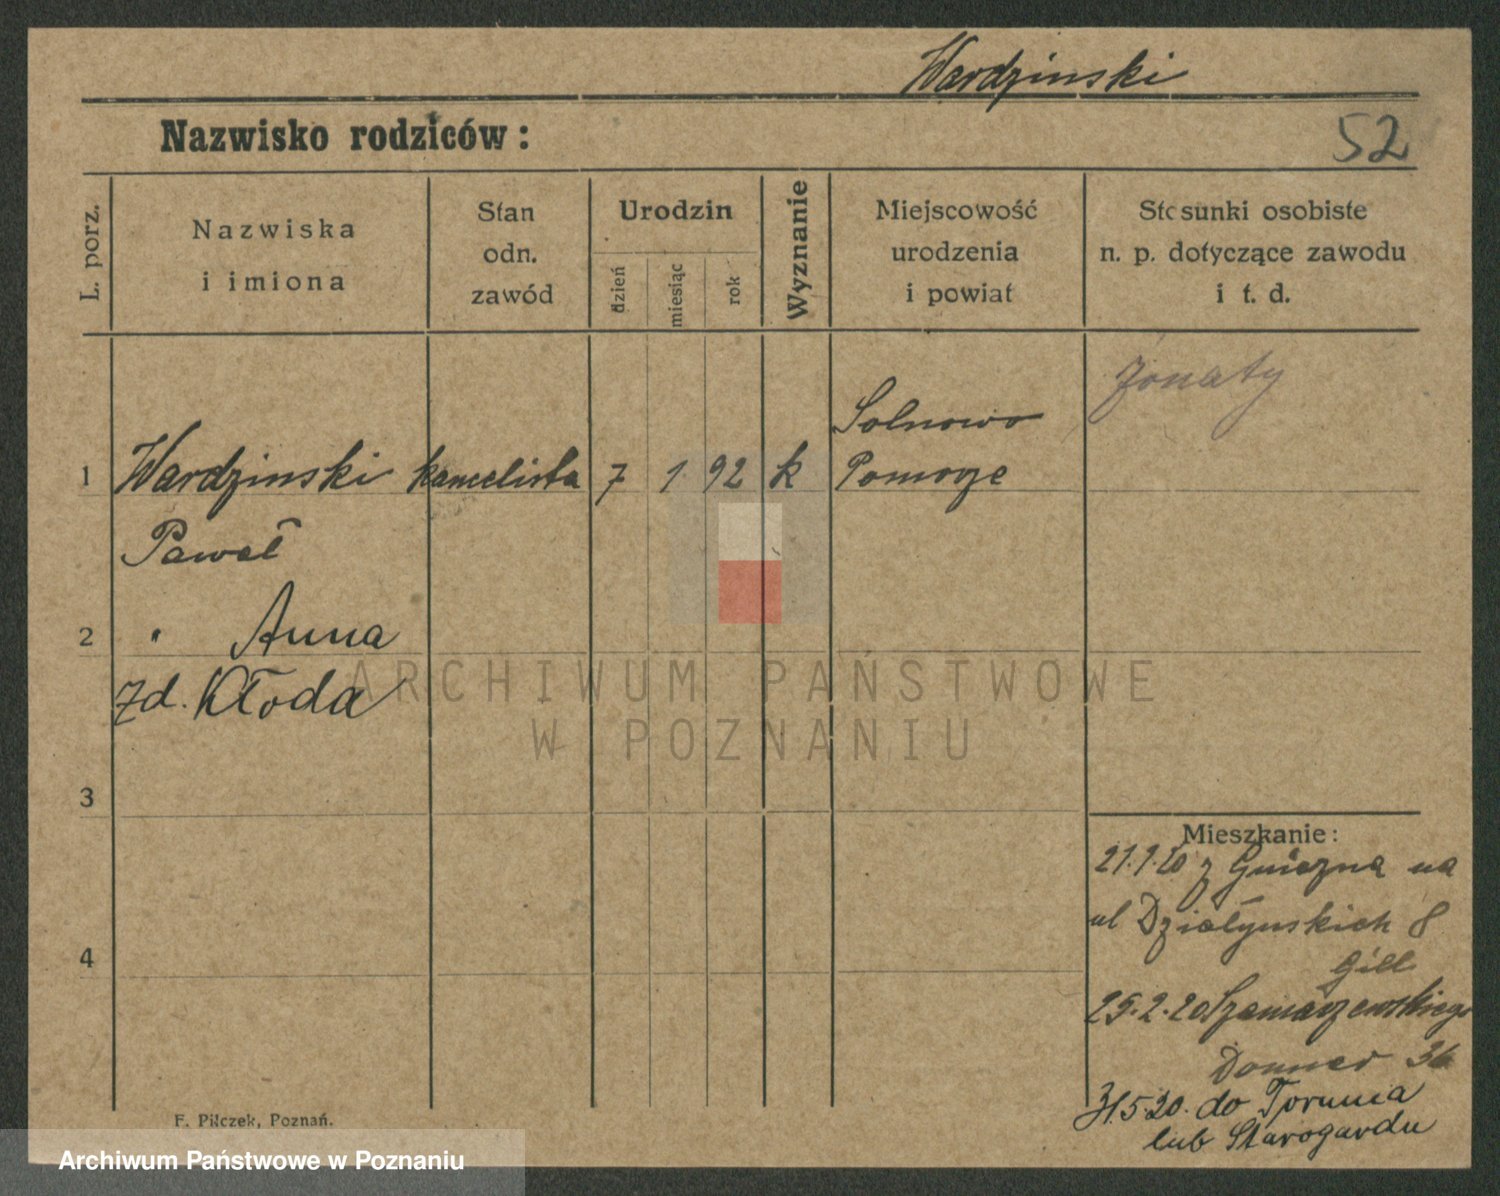 Wardzinski
Nazwisko rodziców:
52
L. porz.
Nazwiska
i imiona
Stan
odn.
zawód
Urodzin
dzień
miesiąc
rok
Wyznanie
Miejscowość
urodzenia
i powiat
Stosunki osobiste
n. p. dotyczące zawodu
i t. d.
żonaty
1 Wardzinski kancelista 7 1 92 k Solnowo
Pomorze
Paweł
2 " Anna
zd. Kłoda
3
4
Mieszkanie:
z Gniezna na
ul Działynskich 8
Gill
25.2.20 Szamarzewskiego
Donner 36
31.5.20. do Torunia
lub Starogardu
F. Pilczek, Poznań.
ARCHIWUM PAŃSTWOWE
W POZNANIU
Archiwum Państwowe w Poznaniu